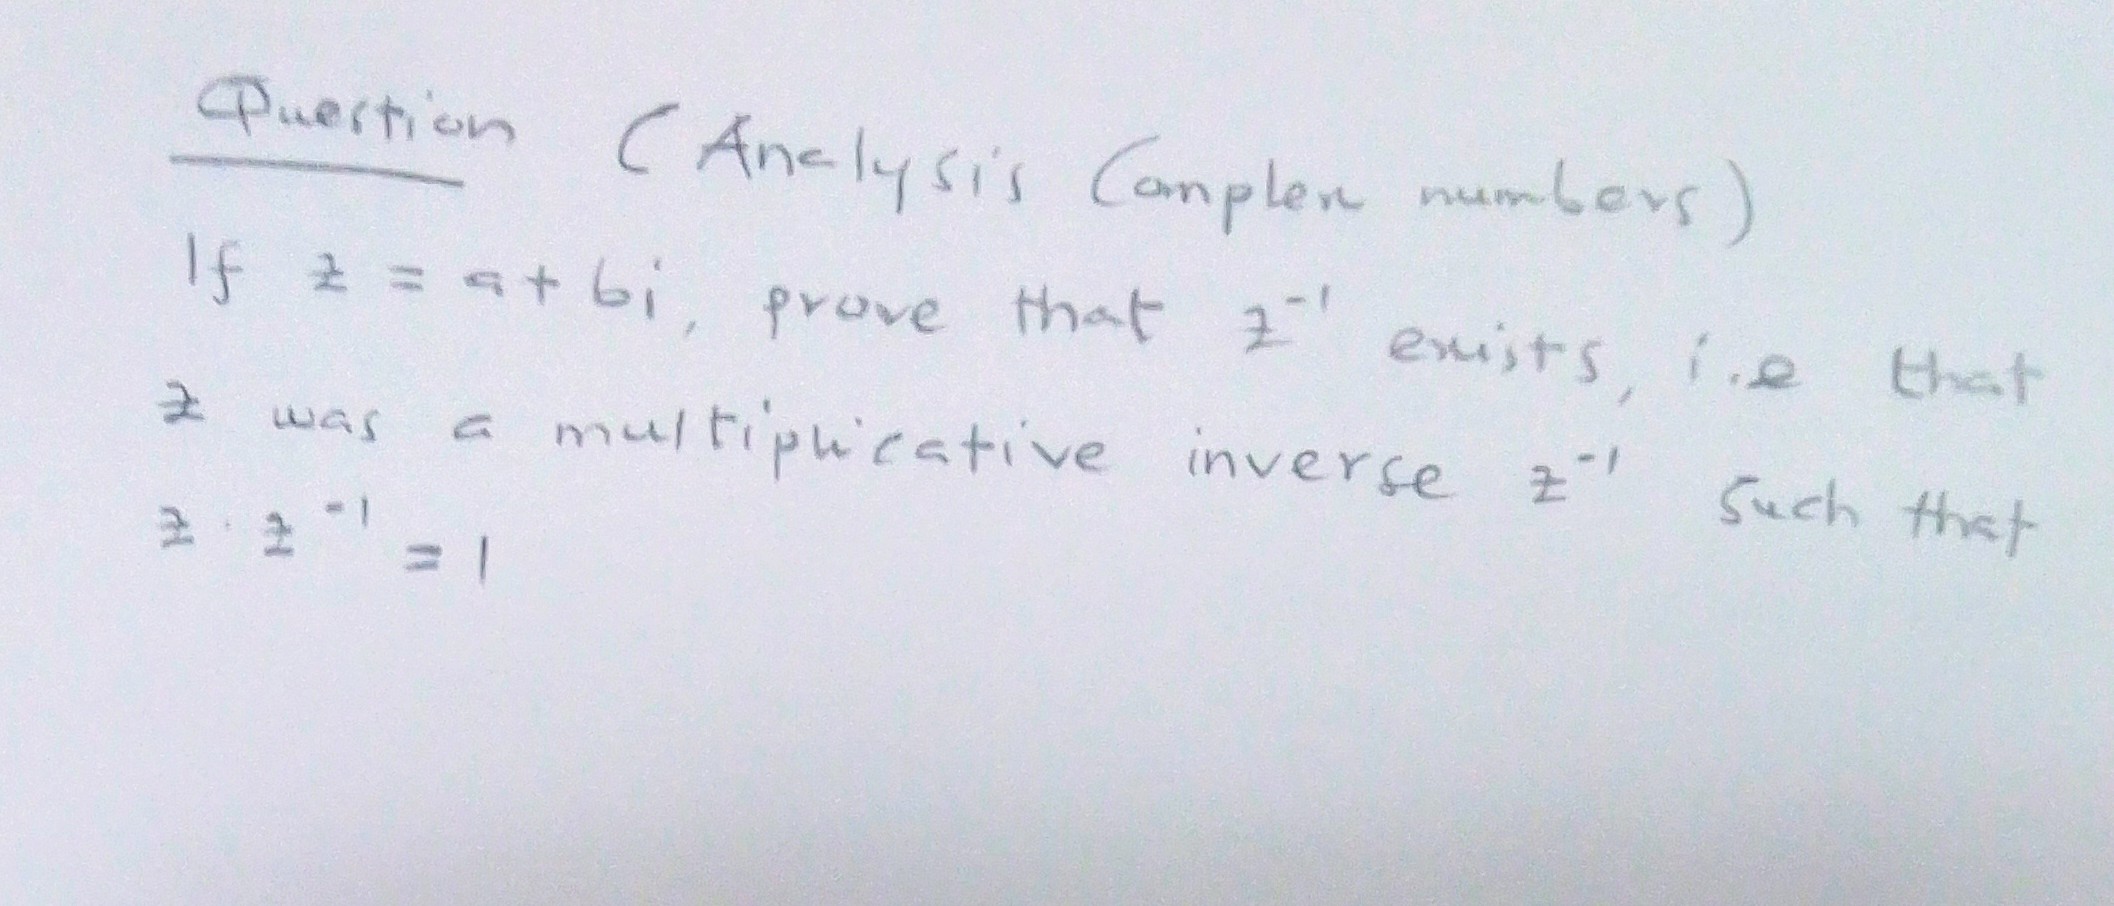 Question (Analysis Complex numbers)
If z = a + bi, prove that z⁻¹ exists, i.e that
z was a multiplicative inverse z⁻¹ such that
z · z⁻¹ = 1